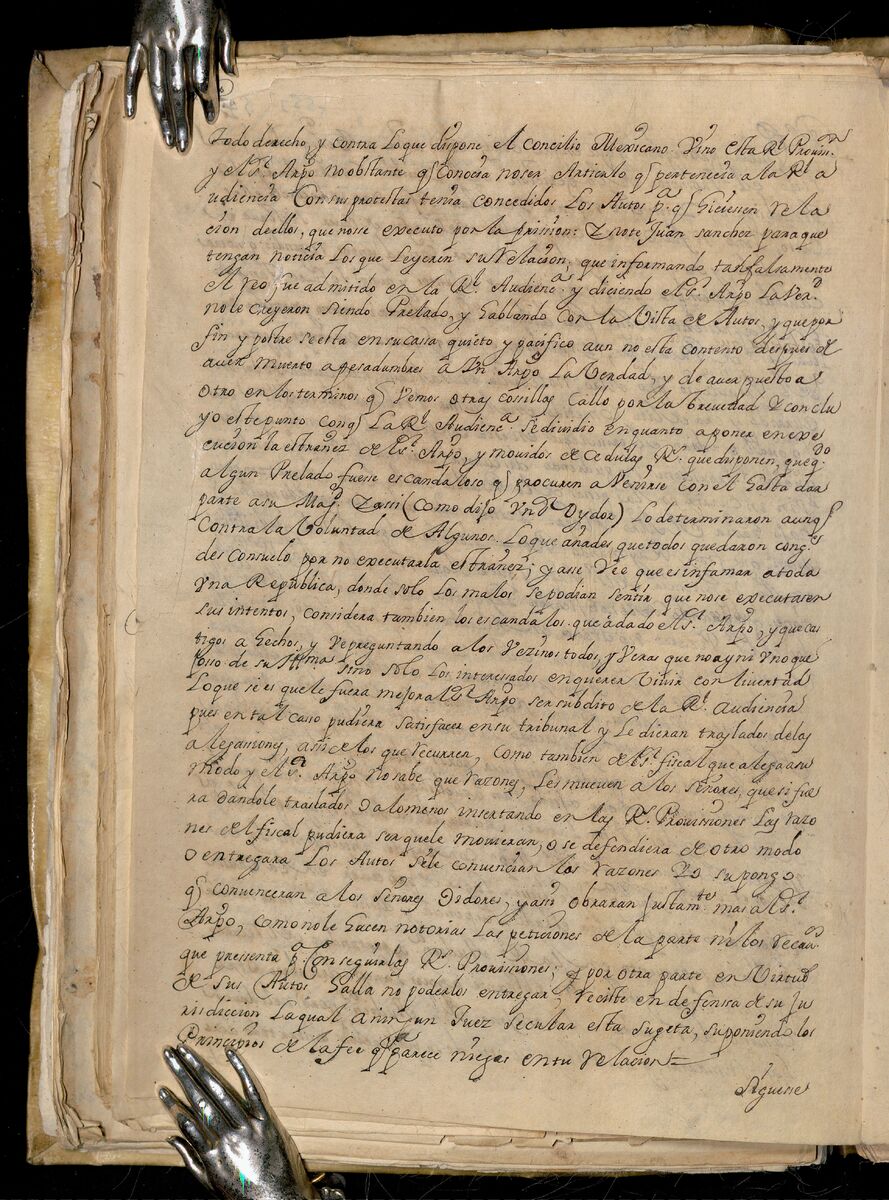 todo derecho, y contra Lo que dispone el concilio Mexicano. Vino esta Rl. Provin.on
y el Sr. Arpo no obstante q̃ Conocia no ser Articulo q̃ pertenecia a la Rl. a
udiencia Con sus protestas tenia concedidos Los Autos pa. q̃ hiciessen rela
cion de ellos, que no se executo por la prission: Y note Juan sanchez para que
tengan noticia Los que Leyeren su relacion, que informando tan falsamente
el no fue admitido en la Rl. Audiena. y diciendo el Sr. Arpo La Verd.
no le creyeron siendo Prelado, y hablando Con la Vista de Autos, y que por
fin y postre se esta en su casa quieto y pacifico aun no esta contento despues de
aver muerto a pesadumbres a Un Arpo La Verdad, y de aver puesto a
otro en los terminos q̃ Vemos otras cossillas Callo por la brevedad Y conclu
yo este punto con q̃ La Rl. Audiena. se dividio en quanto a poner en exe
cucion la estrañez del Sr. Arpo, y movidos de Cedulas Rs. que disponen, que qdo
algun Prelado fuesse escandaloso q̃ procuren avenirse Con el hasta dar
parte a su Magd. Y assi (Como dijo Un Sr. Oydor) Lo determinaron aunq̃
Contra la Voluntad de Algunos. Lo que añades, que todos quedaron con gr.
des consuelo por no executarla estrañez; y asse Vee que es infamar a toda
Vna Republica, donde solo Los malos se podian sentir que no se executasen
sus intentos, considera tambien los escandalos que à dado el Sr. Arpo, y que cas
tigos a hechos, y Ve preguntando a los Vezinos todos, y Veras que no ay ni Vno que
de su Illma sino solo Los interessados en querer Vivir con livertad
Lo que se es que le fuera mejor al Sr. Arpo ser subdito de la Rl. Audiencia
pues en tal caso pudiera satisfacer en su tribunal y Le dieran traslados de las
alegassiones, assi de los que recurren, como tambien del Sr. fiscal que alega a su
modo y el Sr. Arpo no sabe que razones, Les mueven a los señores, que si fue
ra dandole traslados o a lo menos insertando en las Rs. Provissiones Las razo
nes del fiscal pudiera ser que le movieran, o se defendiera de otro modo
o entregara Los Autos si le convencian las razones Yo supongo
q̃ convenceran a los señores Oidores, y assi obraran justamte. mas al Sr.
Arpo, como no le hacen notorias Las peticiones de la parte ni los recau.
que pressenta pa. Conseguir las Rs. Provissiones; y por otra parte en Virtud
de sus Autos halla no poderlos entregar, reciste en defensa de su Ju
risdiccion La qual a ningun Juez secular esta sugeta, suponiendo los
Principios de la fee q̃ parece niegas en tu relacion =
Siguesse